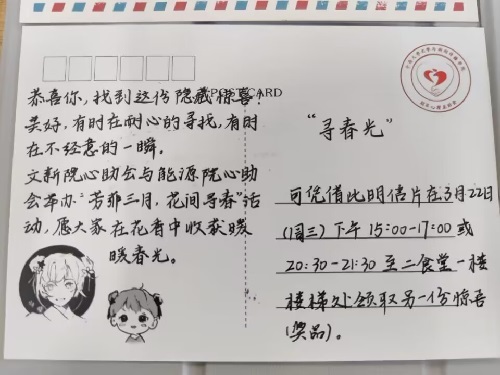 POSTCARD
恭喜你，找到这份隐藏惊喜！
美好，有时在耐心的寻找，有时
在不经意的一瞬。
文新院心助会与能源院心助
会举办“芳菲三月，花间寻春”活
动，愿大家在花香中收获暖
暖春光。
“寻春光”
可凭借此明信片在3月22日
(周三)下午15:00-17:00或
20:30-21:30至二食堂一楼
楼梯处领取另一份惊喜
(奖品)。